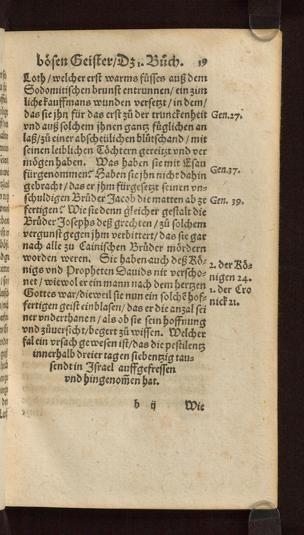 bösen Geister/Dz 1. Büch. 19
Loth/welcher erst warms füsses auß dem
Sodomitischen brunst entrunnen/ein zim
liche kauffmans wunden versetzt/in dem/
das sie jhn für das erst zů der trunckenheit
und auß solchem jhnen gantz füglichen an
laß/zů einer abscheülichen blůtschand/mit
seinen leiblichen Töchtern gereitzt vnd ver
mögen haben. Was haben sie mit Esau
fürgenommen? Haben sie jhn nicht dahin
gebracht/das er jhm fürgesetzt seinen vn-
schuldigen Brůder Jacob die matten ab ze
fertigen? Wie sie denn gleicher gestalt die
Brůder Josephs deß grechten/zů solchem
vergunst gegen jhm verbittert/das sie gar
nach alle zů Cainischen Brůder mördern
worden weren. Sie haben auch deß Kö-
nigs vnd Propheten Dauids nit verscho-
net/wiewol er ein mann nach dem hertzen
Gottes war/dieweil sie nun ein solchē hof-
fertigen geist einblasen/das er die anzal sei
ner vnderthanen/als ob sie sein hoffnung
vnd zůuersicht/begert zů wissen. Welcher
fal ein vrsach gewesen ist/das die pestilentz
innerhalb dreier tagen siebentzig tau-
sendt in Israel auffgefressen
vnd hingenom̄en hat.
b ij Wie
Gen. 27.
Gen. 37.
Gen. 39.
2. der Kö-
nigen 24.
1. der Cro
nick 21.